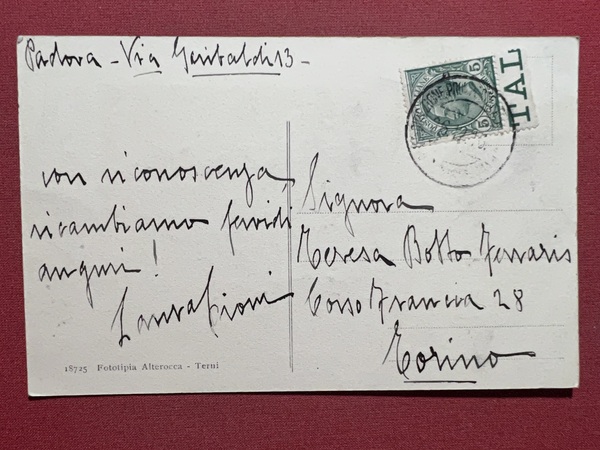 Padova - Via Garibaldi 13 -
TAL
5 5
con riconoscenza
ricambiamo fervidi
auguri!
Laura Cioni
Signora
Teresa Botto Ferraris
Corso Francia 28
Torino
18725 Fototipia Alterocca - Terni